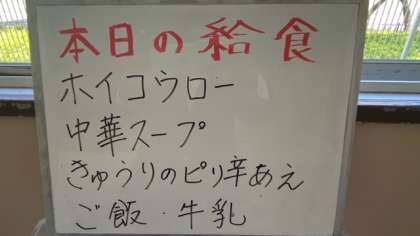 本日の給食
ホイコウロー
中華スープ
きゅうりのピリ辛あえ
ご飯・牛乳